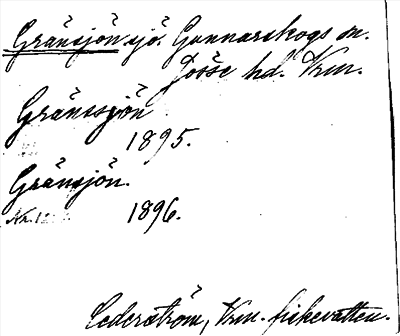 Gränsjön sjö. Gunnarskogs sn.
Jösse hd. Vrm.
Gränssjön
1895.
Gränsjön.
Nr. 1 1896.
Cederström, Vrm. fiskevatten.